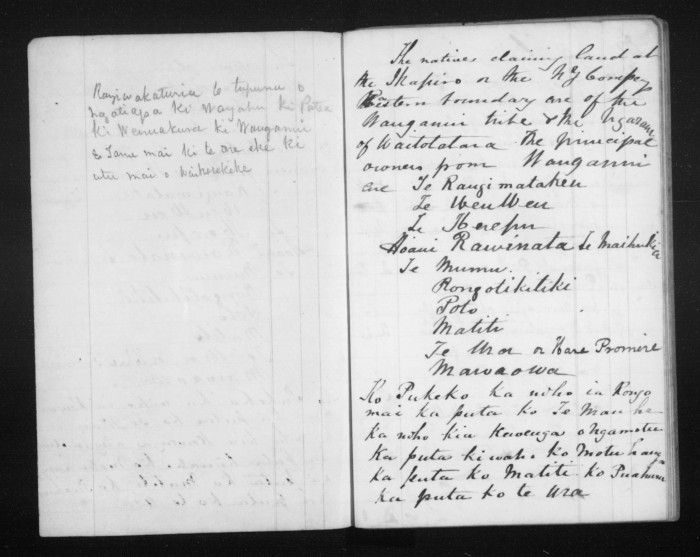 Rangiwakaturia te tupuna o
ngatiapa ki Wayahu ki Patea
ki Wenuakura ki Wanganui
& Tanu mai ki te are eke ki
utu mai o Waikerekeke
The natives claiming land at
the Ikapiro or the NZ Company
Eastern boundary are of the
Wanganui tribe & the ngarau
of Waitotatara The principal
owners from Wanganui
are Te Rangimatakeu
Te WenWeu
Te Kerepu
Hoani Rawinata Te Maihukia
Te Mumu.
Rongotikitiki
Poto
Matiti
Te Ura or Hare Promire
Mawaowa
Ko Pukeko ka noho ia Rongo
mai ka puta ko Te Mau ha
Ka noho kia Kewenga o Ngamotu
Ka puta ki waho ko Motu
ka puta ko Matiti ko Puahuru
ka puta ko te Ura